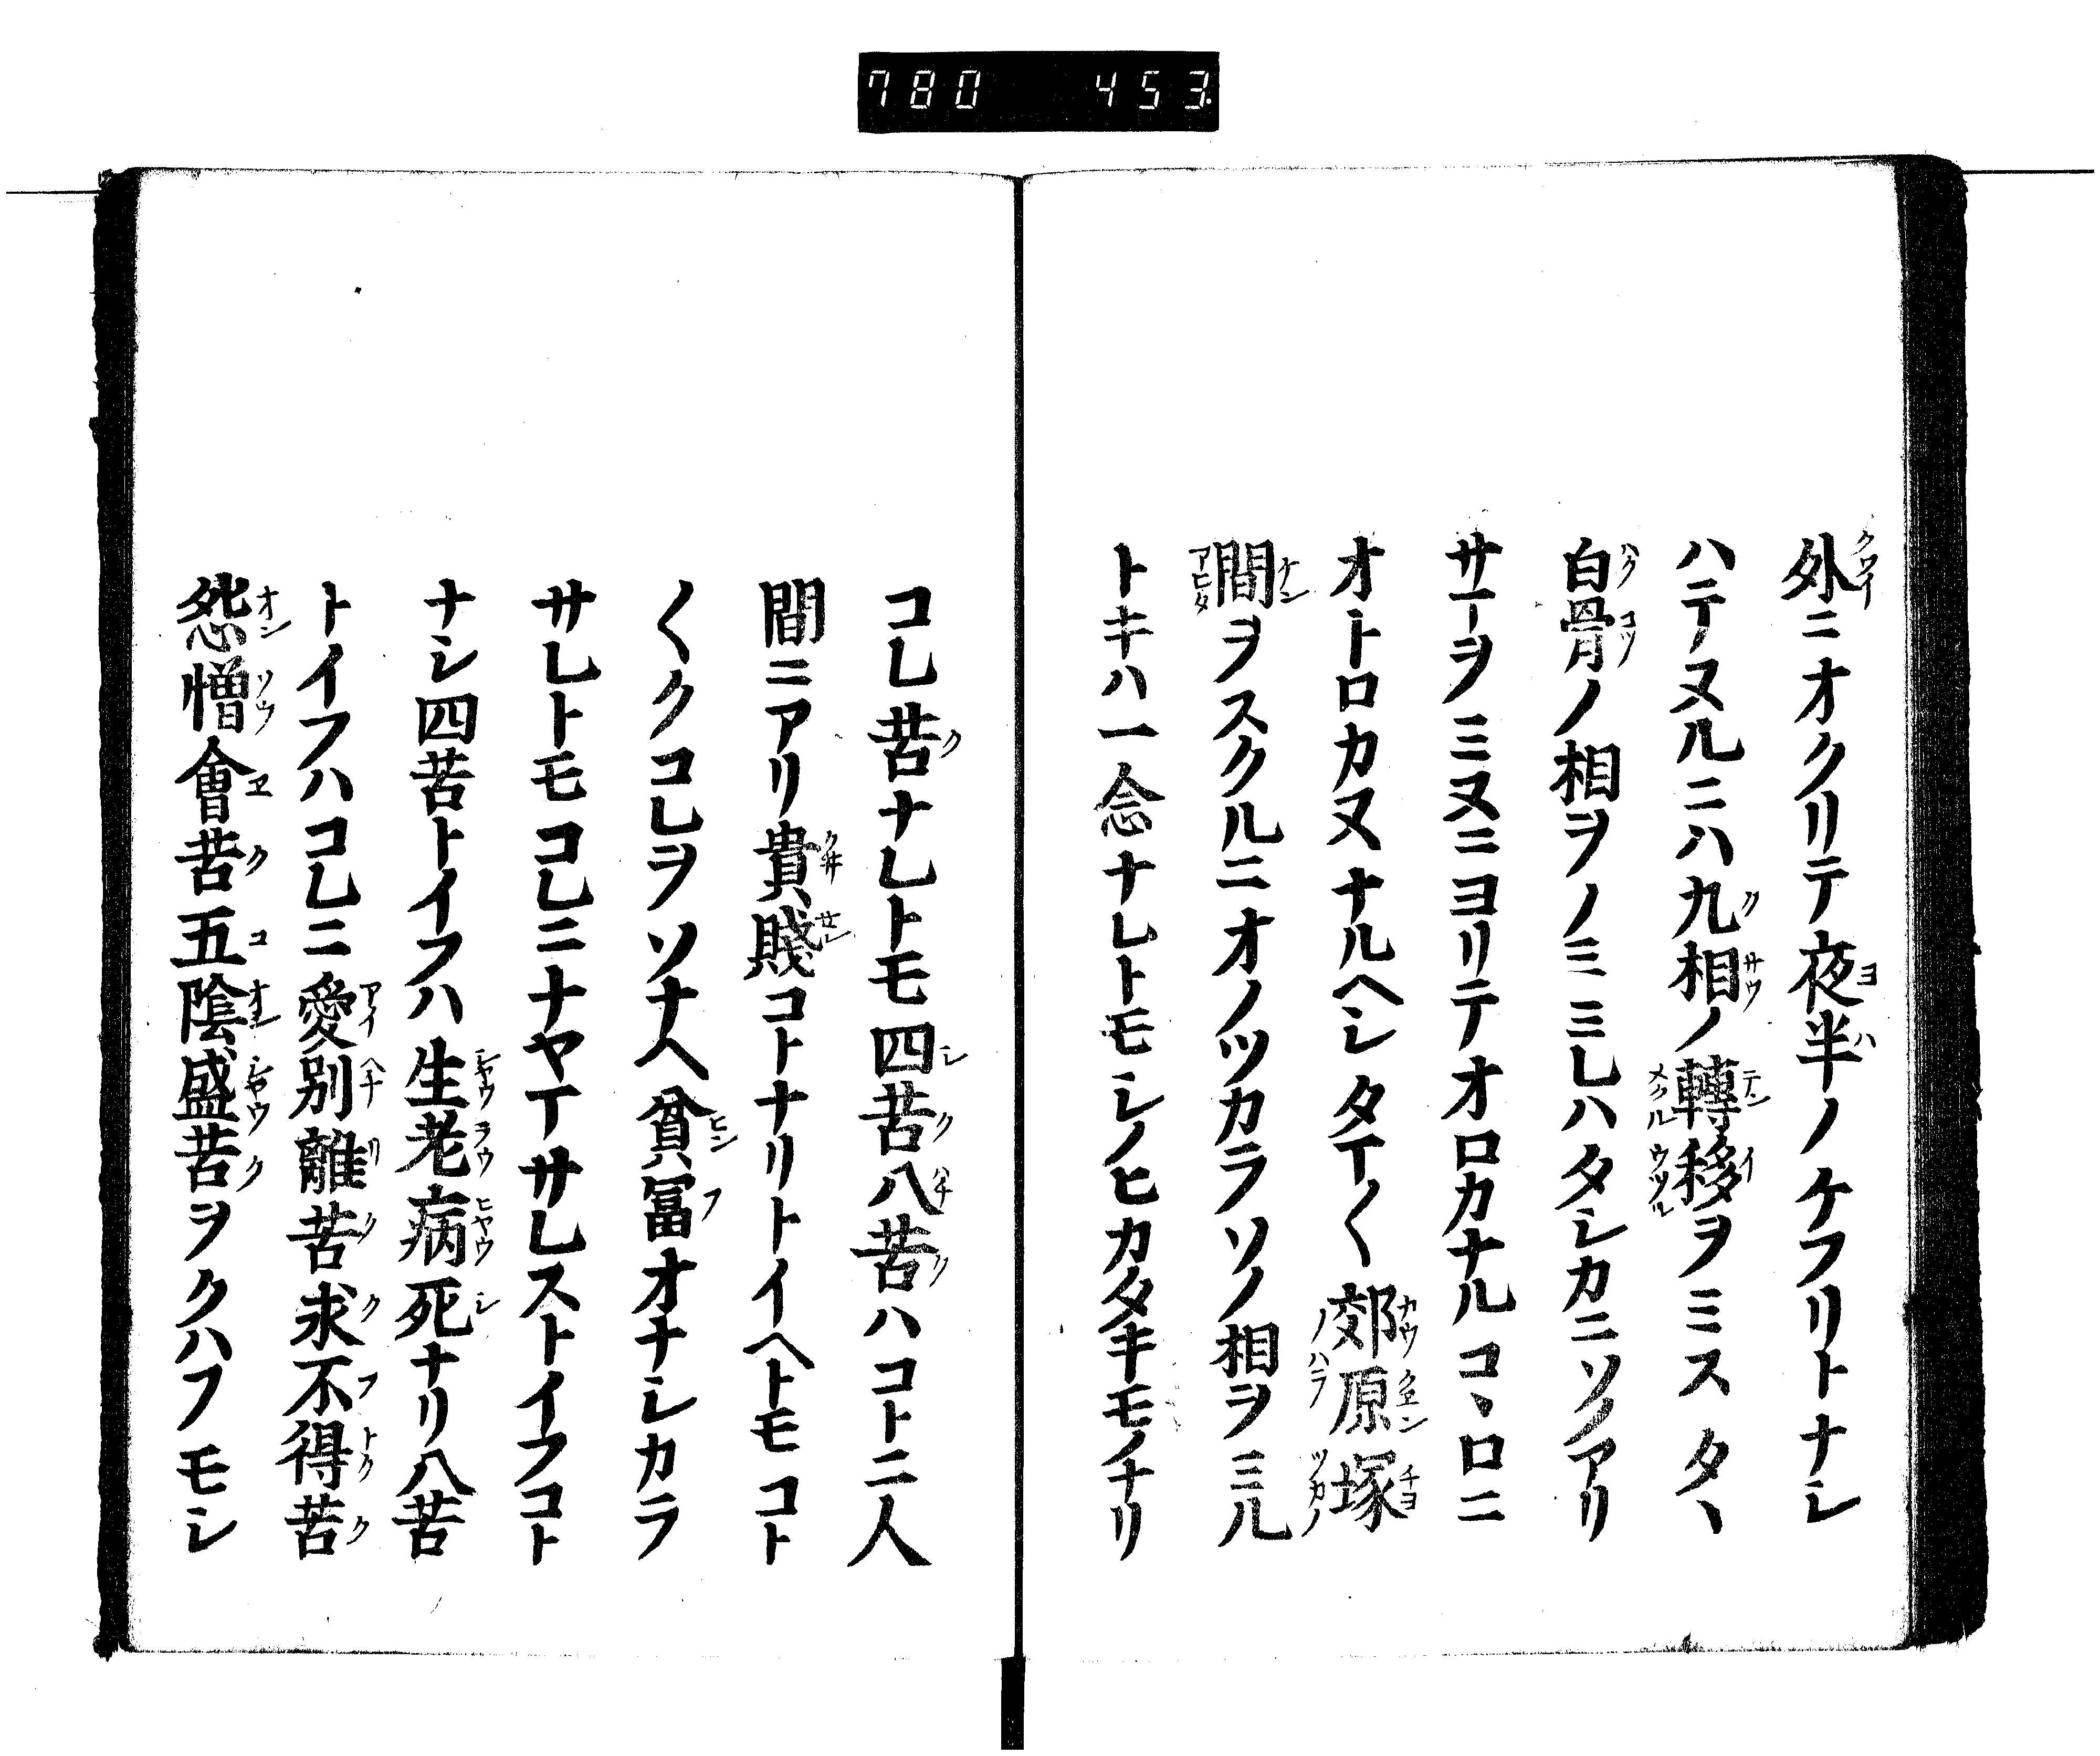 780 453
外ニオクリテ夜半ノケフリトナシ
ハテヌルニハ九相ノ轉移ヲミスタヽ
白骨ノ相ヲノミミレハタシカニソノアリ
サマヲミヌニヨリテオロカナルコヽロニ
オトロカヌナルヘシタマ〱郊原塚
間ヲスクルニオノツカラソノ相ヲミル
トキハ一念ナレトモシノヒカタキモノナリ
コレ苦ナレトモ四苦八苦ハコトニ人
間ニアリ貴賤コトナリトイヘトモコト
〱クコレヲソナヘ貧冨オナシカラ
サレトモコレニナヤマサレストイフコト
ナシ四苦トイフハ生老病死ナリ八苦
トイフハコレニ愛別離苦求不得苦
怨憎會苦五陰盛苦ヲクハフモシ